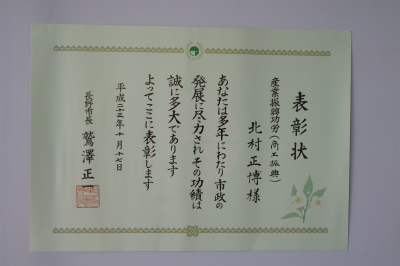 表彰状
産業振興功労(商工振興)
北村正博様
あなたは多年にわたり市政の
発展に尽力されその功績は
誠に多大であります
よってここに表彰します
平成二十三年十月十七日
長野市長 鷲澤正一